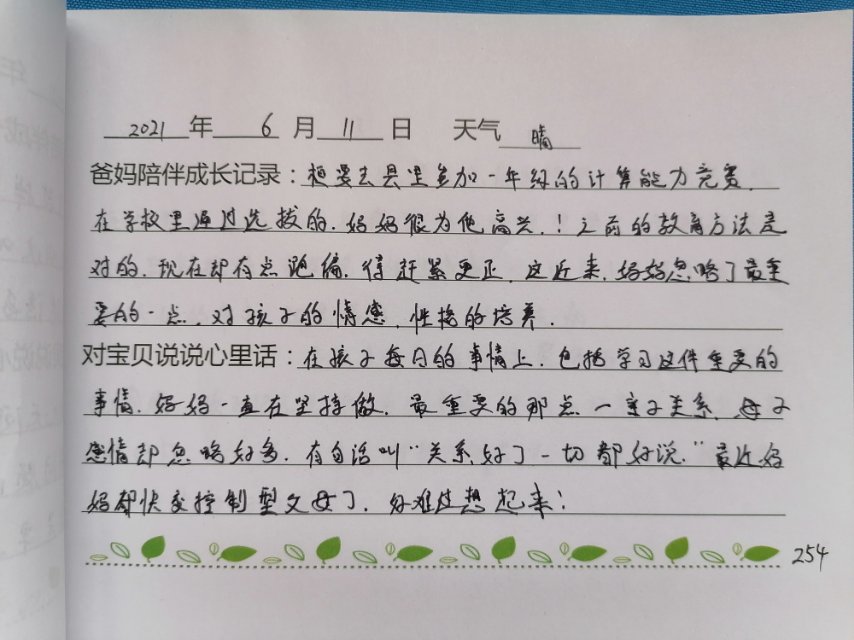 2021 年 6 月 11 日 天气 晴
爸妈陪伴成长记录：想要去县里参加一年级的计算能力竞赛.
在学校里通过选拔的.妈妈很为他高兴.！之前的教育方法是
对的.现在却有点跑偏.得赶紧更正.这近来.妈妈忽略了最重
要的一点.对孩子的情感.性格的培养.
对宝贝说说心里话：在孩子每日的事情上.包括学习这件重要的
事情.妈妈一直在坚持做.最重要的那点一亲子关系.母子
感情却忽略好多.有句话叫“关系好了一切都好说.”最近妈
妈都快变控制型父母了.好难过想起来！
254